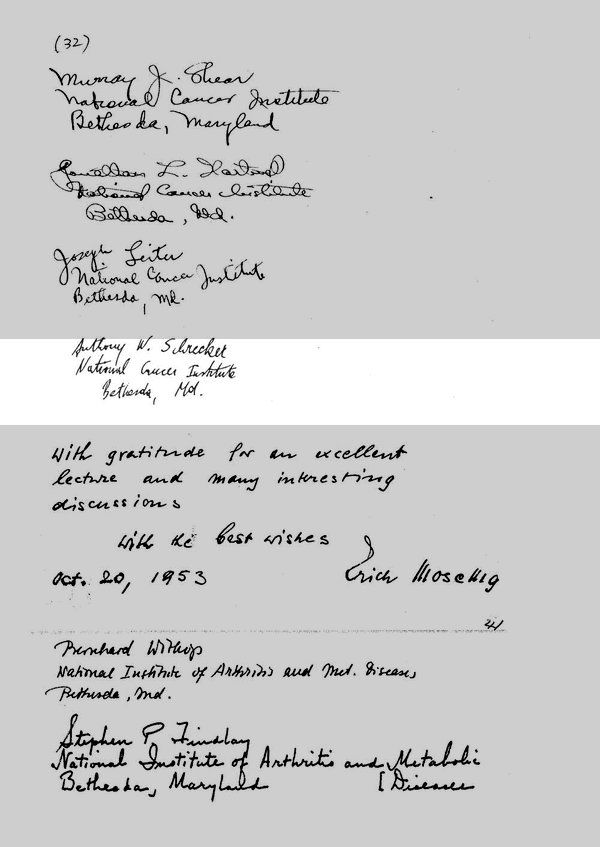 (32)
Murray J. Shear
National Cancer Institute
Bethesda, Maryland
Jonathan L. Hartwell
National Cancer Institute
Bethesda, Md.
Joseph Leiter
National Cancer Institute
Bethesda, Md.
Anthony W. Schrecker
National Cancer Institute
Bethesda, Md.
With gratitude for an excellent
lecture and many interesting
discussions
With the best wishes
Oct. 20, 1953 Erich Mosettig
Bernhard Witkop
National Institute of Arthritis and Met. Diseases
Bethesda, Md.
Stephen P. Findlay
National Institute of Arthritis and Metabolic
Bethesda, Maryland [Diseases